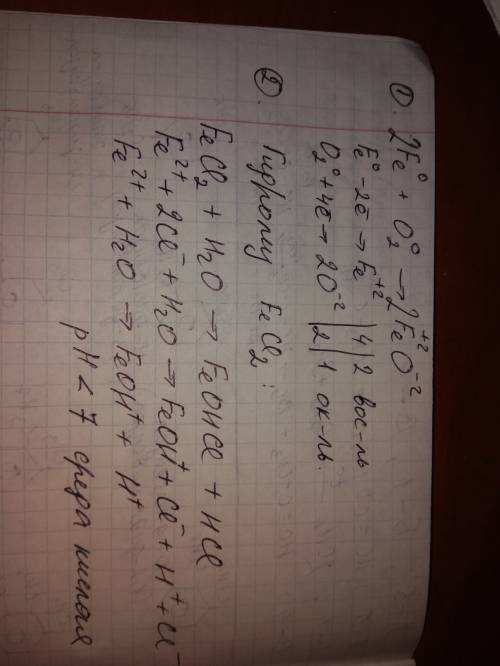 ①. 2Fe⁰ + O₂⁰ → 2Fe⁺²O⁻²
Fe⁰ - 2ē → Fe⁺² | 4 | 2 вос-ль
O₂⁰ + 4ē → 2O⁻² | 2 | 1 ок-ль.
②. Гидролиз FeCl₂ :
FeCl₂ + H₂O → FeOHCl + HCl
Fe²⁺ + 2Cl⁻ + H₂O → FeOH⁺ + Cl⁻ + H⁺ + Cl⁻
Fe²⁺ + H₂O → FeOH⁺ + H⁺
pH < 7 среда кислая